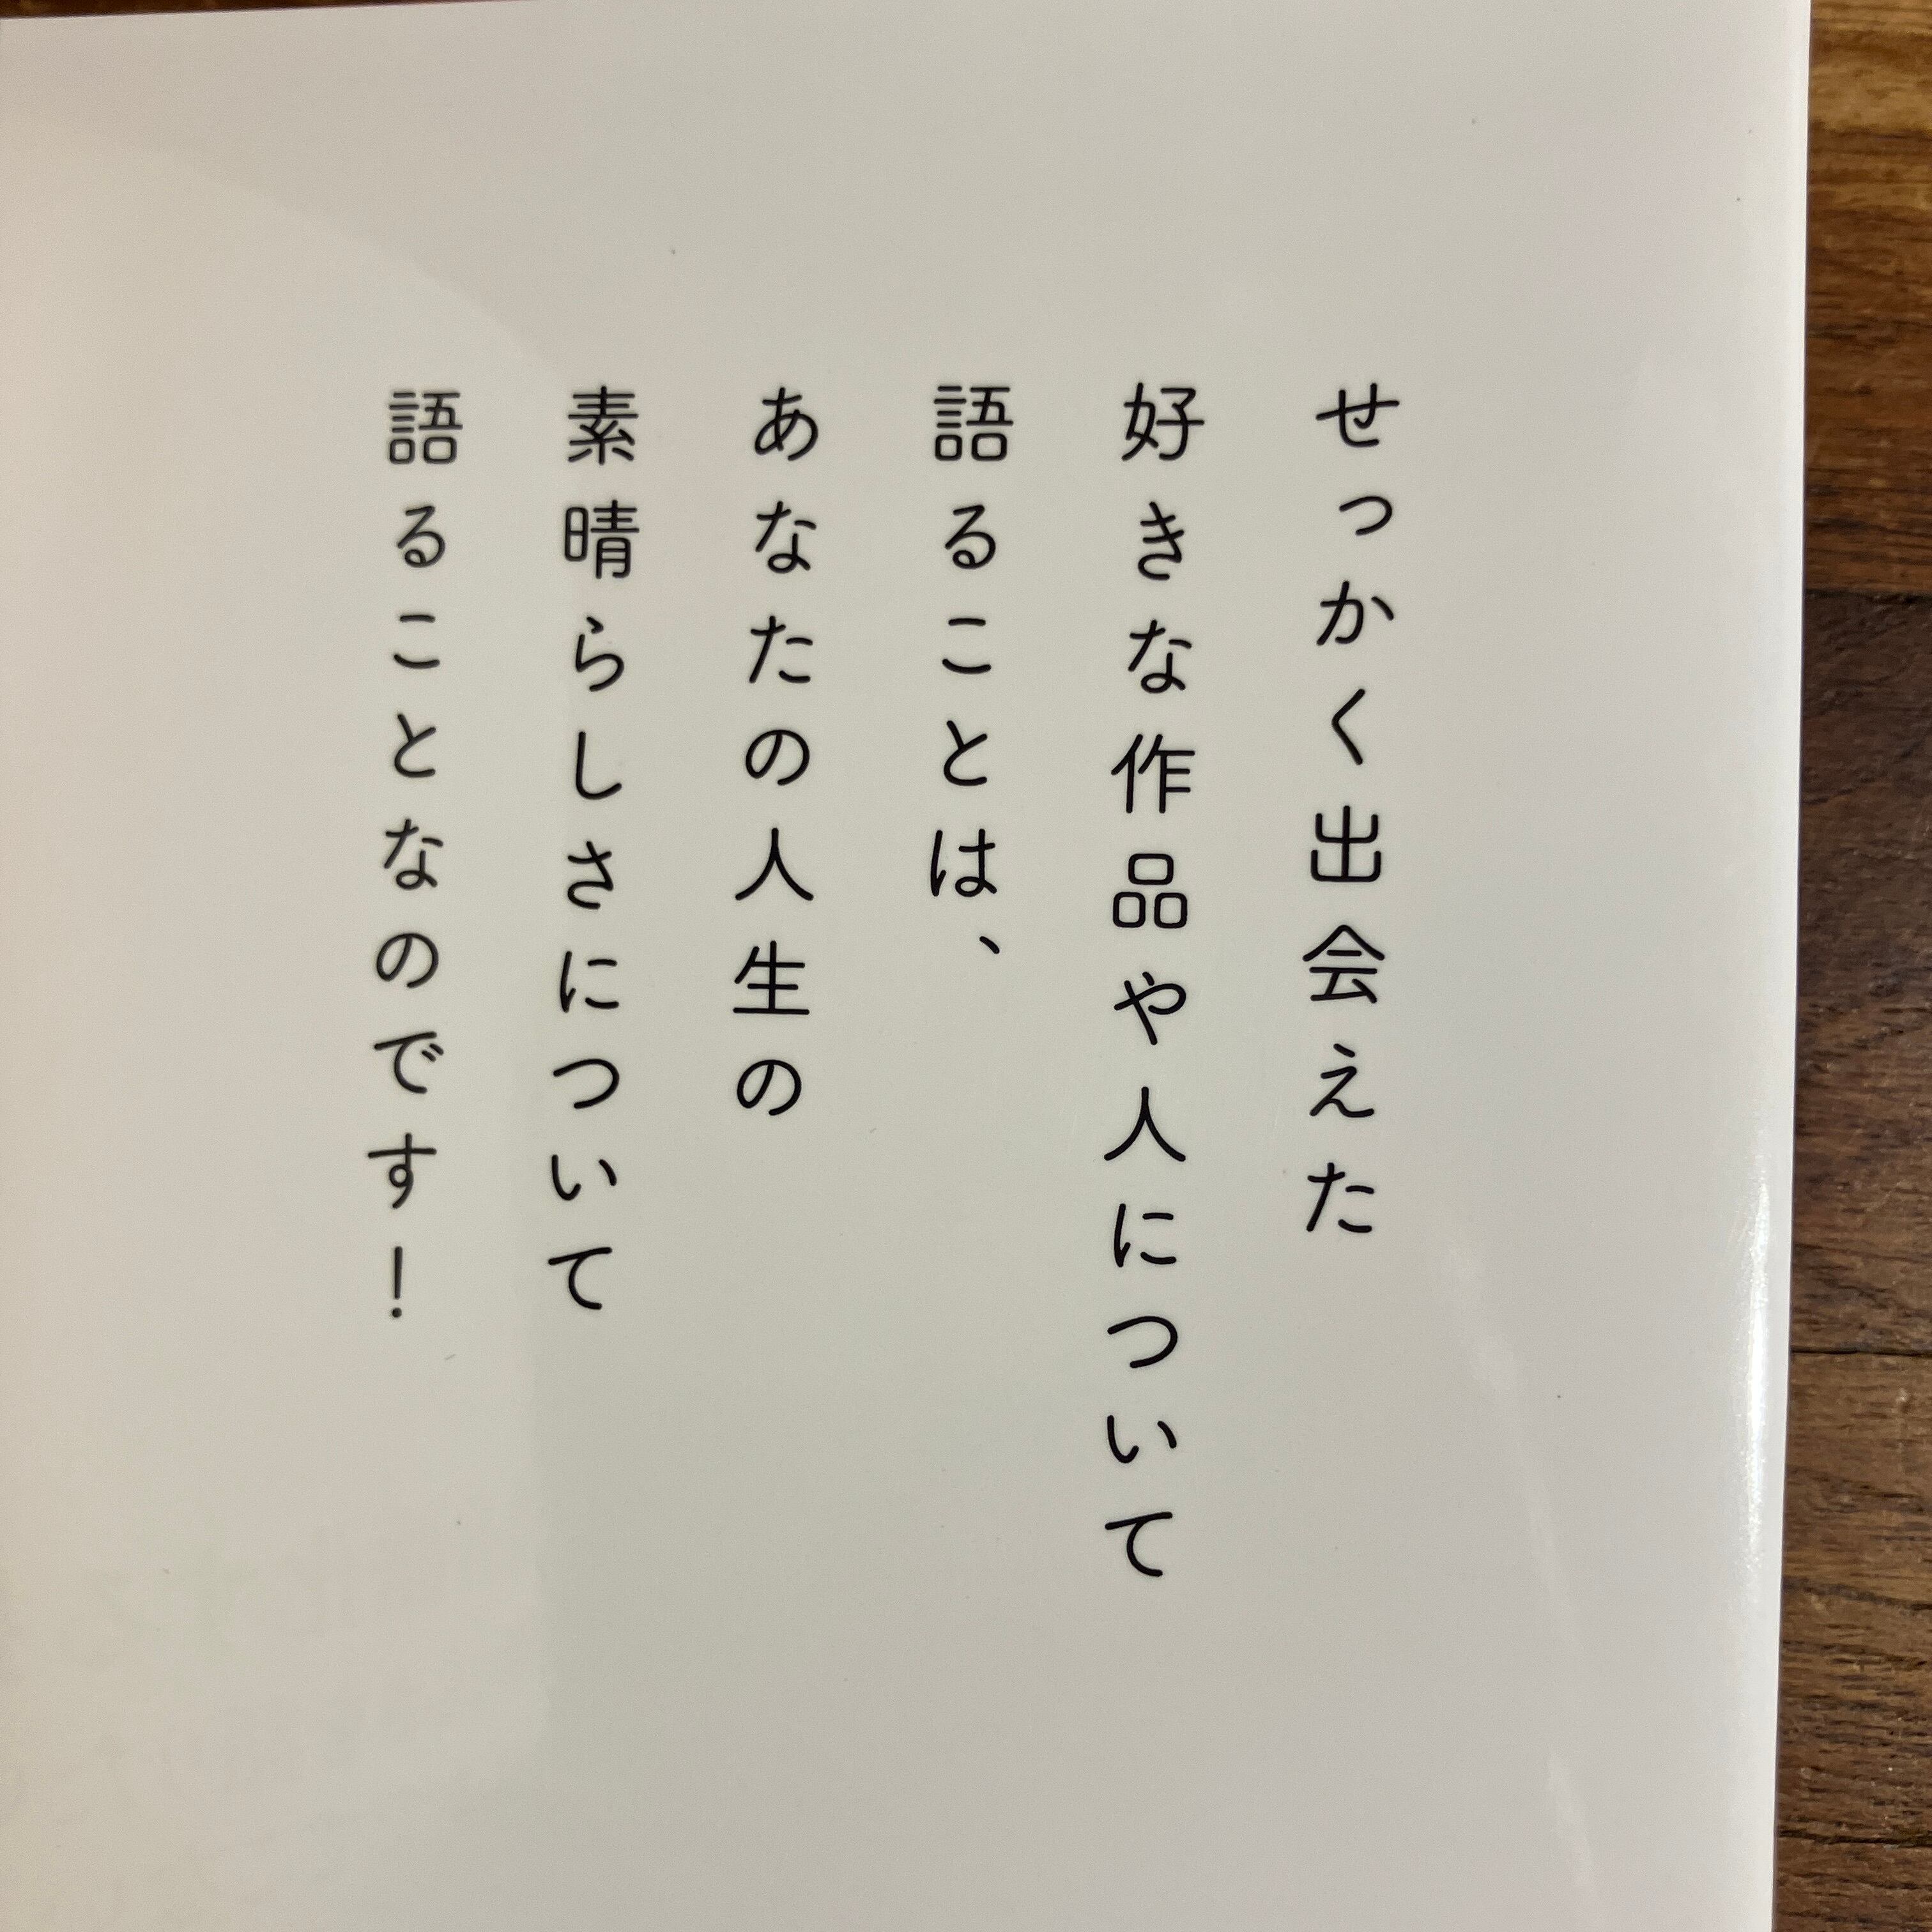 せっかく出会えた
好きな作品や人について
語ることは、
あなたの人生の
素晴らしさについて
語ることなのです！